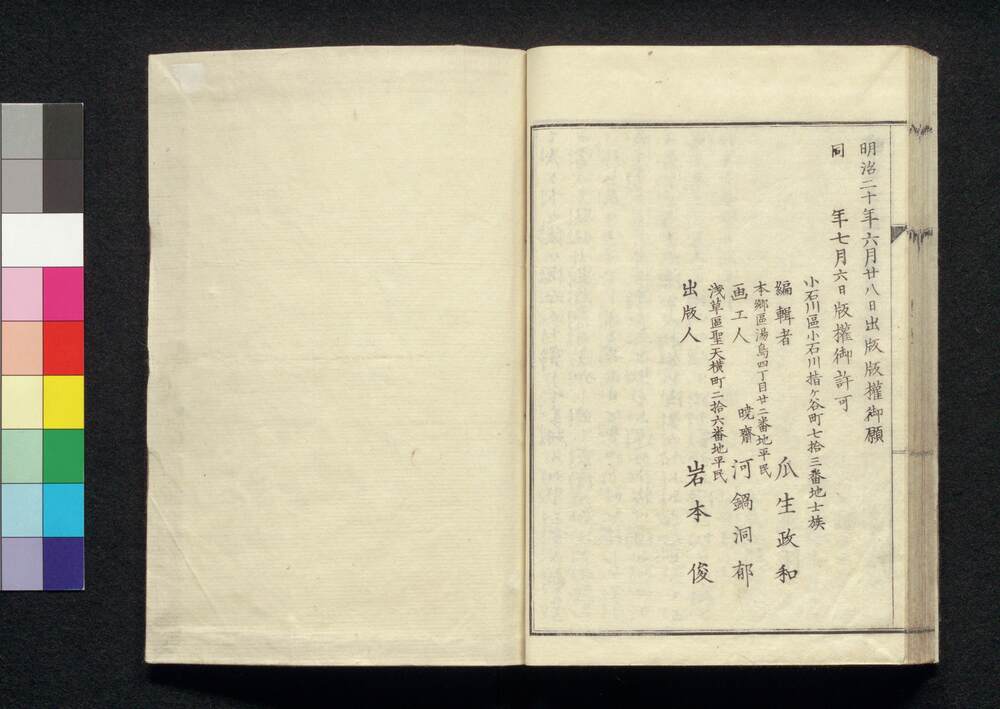 明治二十年六月廿八日出版版權御願
同年七月六日版權御許可
小石川區小石川指ヶ谷町七拾三番地士族
編輯者 瓜生政和
本郷區湯島四丁目廿二番地平民
画工人 暁齋 河鍋洞郁
浅草區聖天横町二拾六番地平民
出版人 岩本俊